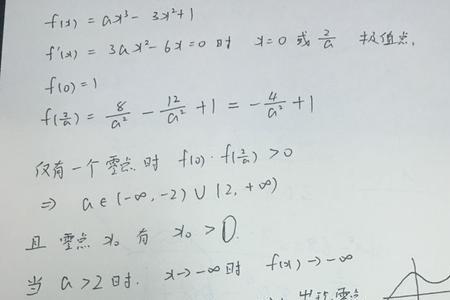 f(x) = ax³ - 3x² + 1
f'(x) = 3ax² - 6x = 0 时 x = 0 或 2/a 极值点.
f(0) = 1
f(2/a) = 8/a² - 12/a² + 1 = -4/a² + 1
仅有一个零点时 f(0)·f(2/a) > 0
⇒ a ∈ (-∞, -2) ∪ (2, +∞)
且 零点 x₀ 有 x₀ > 0.
当 a > 2 时. x → -∞ 时 f(x) → -∞